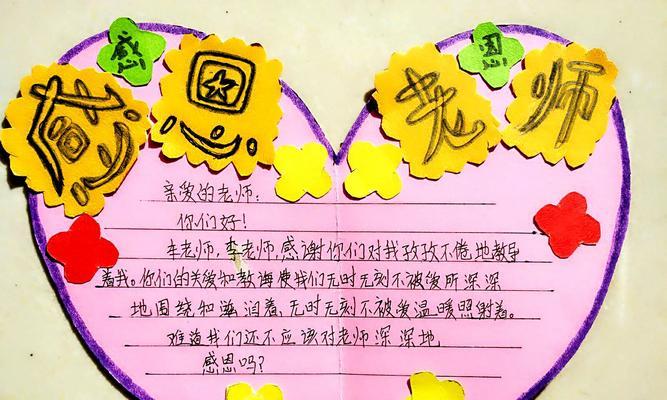 感 恩
感恩老师
亲爱的老师：
你们好！
辛老师，李老师，感谢你们对我孜孜不倦地教导
着我。你们的关爱和教诲使我们无时无刻不被爱所深深
地围绕和滋润着、无时无刻不被爱温暖照射着。
难道我们还不应该对老师深深地
感恩吗？